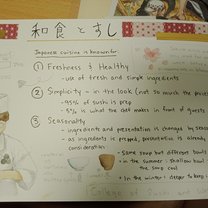 和食とすし
Japanese cuisine is known for
① Freshness & Healthy
- use of fresh and simple ingredients
② Simplicity - in the look (not so much the price)
- 95% of sushi is prep
- 5% is what the chef makes in front of guests
③ Seasonality
- ingredients and presentation is changed by season
- as ingredients is prepped, presentation is already
consideration
- Same soup but different bowls
- in the summer: shallow bowl
the soup cool
- In the winter: deeper to keep